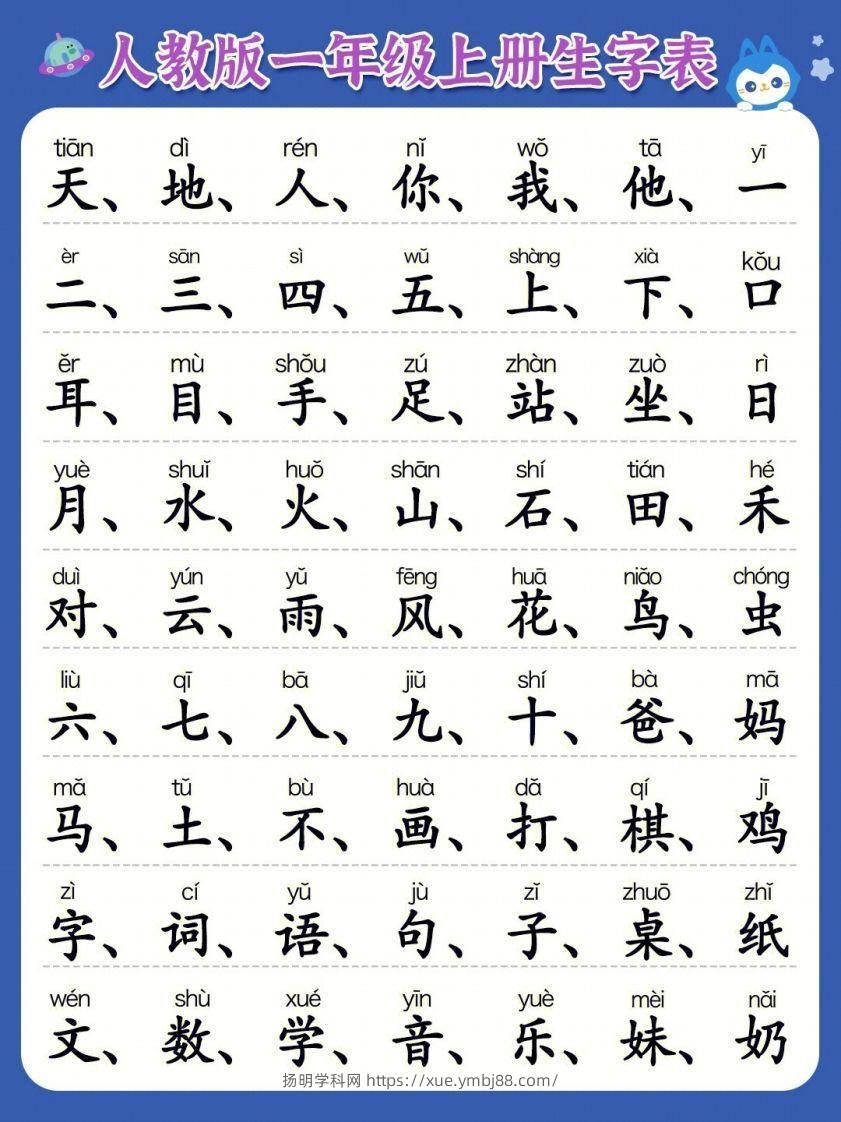 人教版一年级上册生字表
tiān dì rén nǐ wǒ tā yī
天、地、人、你、我、他、一
èr sān sì wǔ shàng xià kǒu
二、三、四、五、上、下、口
ěr mù shǒu zú zhàn zuò rì
耳、目、手、足、站、坐、日
yuè shuǐ huǒ shān shí tián hé
月、水、火、山、石、田、禾
duì yún yǔ fēng huā niǎo chóng
对、云、雨、风、花、鸟、虫
liù qī bā jiǔ shí bà mā
六、七、八、九、十、爸、妈
mǎ tǔ bù huà dǎ qí jī
马、土、不、画、打、棋、鸡
zì cí yǔ jù zǐ zhuō zhǐ
字、词、语、句、子、桌、纸
wén shù xué yīn yuè mèi nǎi
文、数、学、音、乐、妹、奶
扬明学科网 https://xue.ymbj88.com/